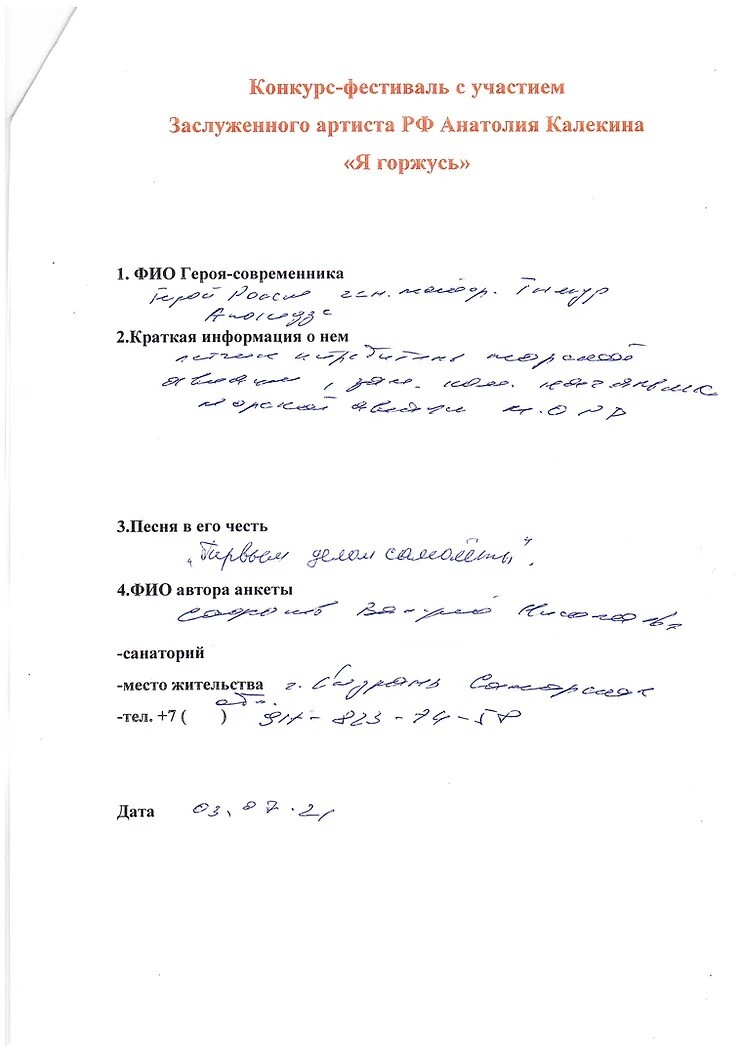 Конкурс-фестиваль с участием
Заслуженного артиста РФ Анатолия Калекина
«Я горжусь»
1. ФИО Героя-современника
Герой России ген. майор. Тимур
Апакидзе
2.Краткая информация о нем
летчик истребитель морской
авиации, зам. ком. начальника
морской авиации
3.Песня в его честь
„Первым делом самолёты".
4.ФИО автора анкеты
-санаторий
-место жительства г. Сызрань Самарская
обл.
-тел. +7 ( )
Дата 03.07.21